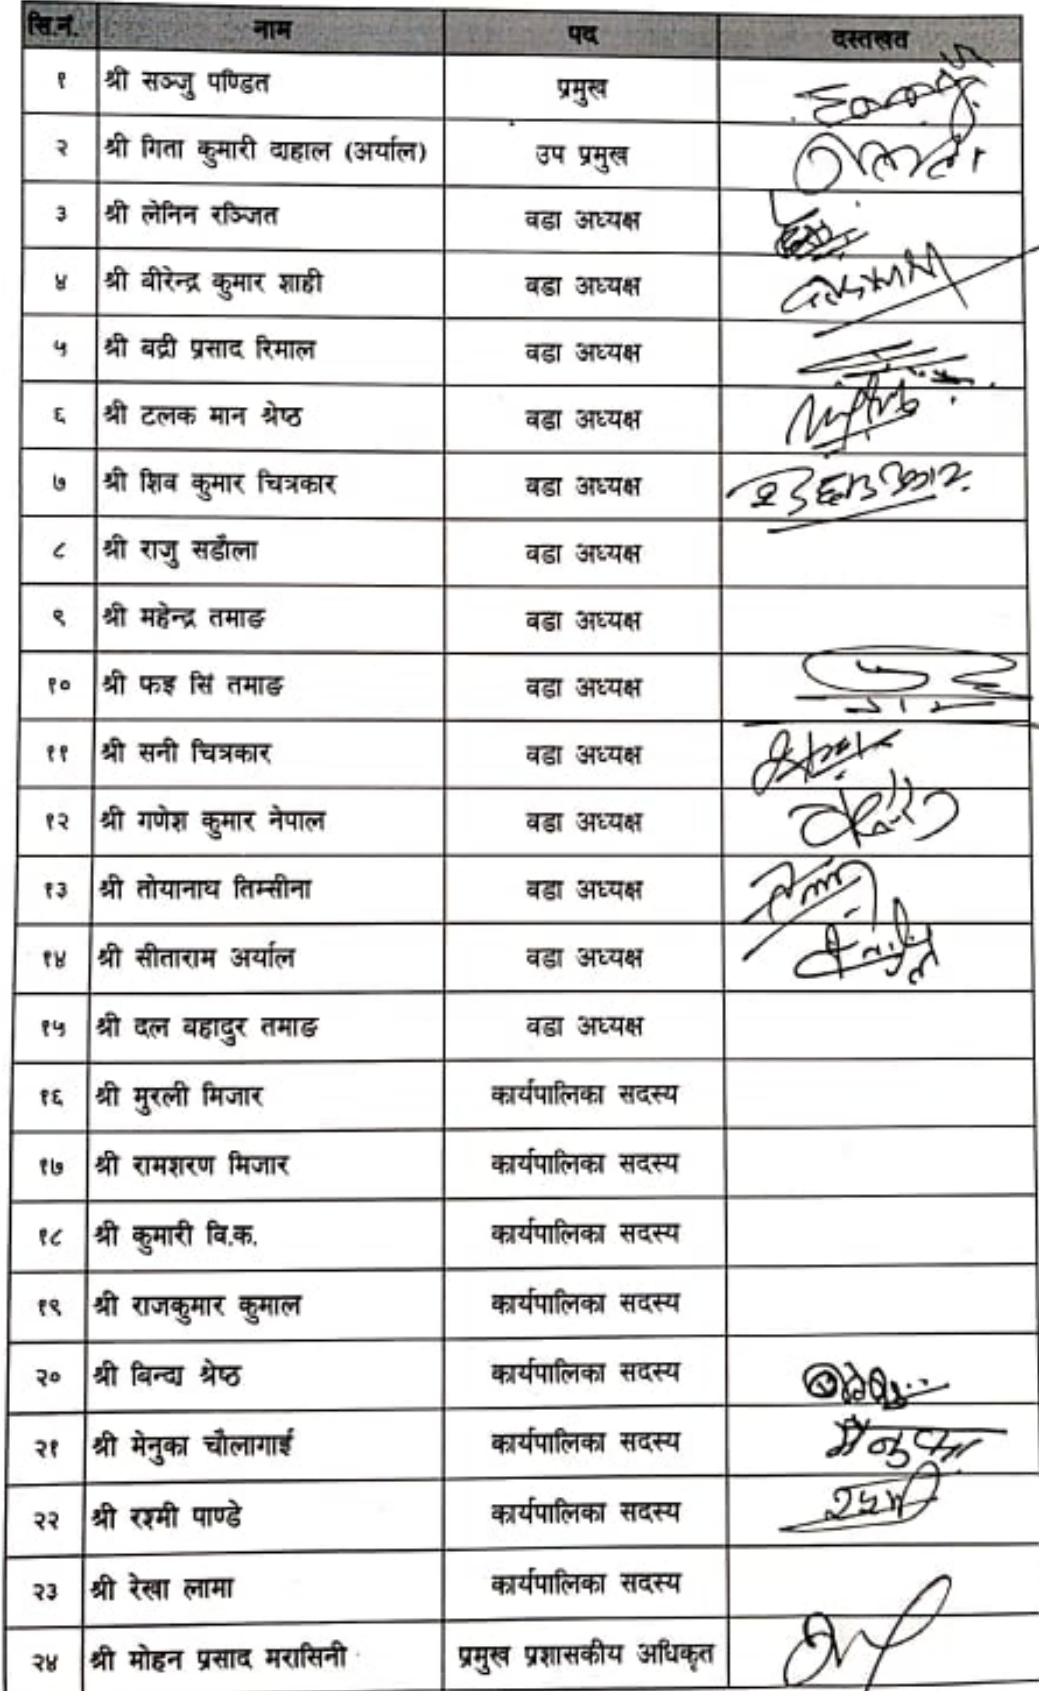 सि.नं. नाम पद दस्तखत
१ श्री सञ्जु पण्डित प्रमुख
२ श्री गिता कुमारी दाहाल (अर्याल) उप प्रमुख
३ श्री लेनिन रञ्जित वडा अध्यक्ष
४ श्री बीरेन्द्र कुमार शाही वडा अध्यक्ष
५ श्री बद्री प्रसाद रिमाल वडा अध्यक्ष
६ श्री टलक मान श्रेष्ठ वडा अध्यक्ष
७ श्री शिव कुमार चित्रकार वडा अध्यक्ष
८ श्री राजु सडौला वडा अध्यक्ष
९ श्री महेन्द्र तमाङ वडा अध्यक्ष
१० श्री फइ सिं तमाङ वडा अध्यक्ष
११ श्री सनी चित्रकार वडा अध्यक्ष
१२ श्री गणेश कुमार नेपाल वडा अध्यक्ष
१३ श्री तोयानाथ तिम्सीना वडा अध्यक्ष
१४ श्री सीताराम अर्याल वडा अध्यक्ष
१५ श्री दल बहादुर तमाङ वडा अध्यक्ष
१६ श्री मुरली मिजार कार्यपालिका सदस्य
१७ श्री रामशरण मिजार कार्यपालिका सदस्य
१८ श्री कुमारी वि.क. कार्यपालिका सदस्य
१९ श्री राजकुमार कुमाल कार्यपालिका सदस्य
२० श्री बिन्दा श्रेष्ठ कार्यपालिका सदस्य
२१ श्री मेनुका चौलागाई कार्यपालिका सदस्य मेनुका
२२ श्री रश्मी पाण्डे कार्यपालिका सदस्य रश्मी
२३ श्री रेखा लामा कार्यपालिका सदस्य
२४ श्री मोहन प्रसाद मरासिनी प्रमुख प्रशासकीय अधिकृत